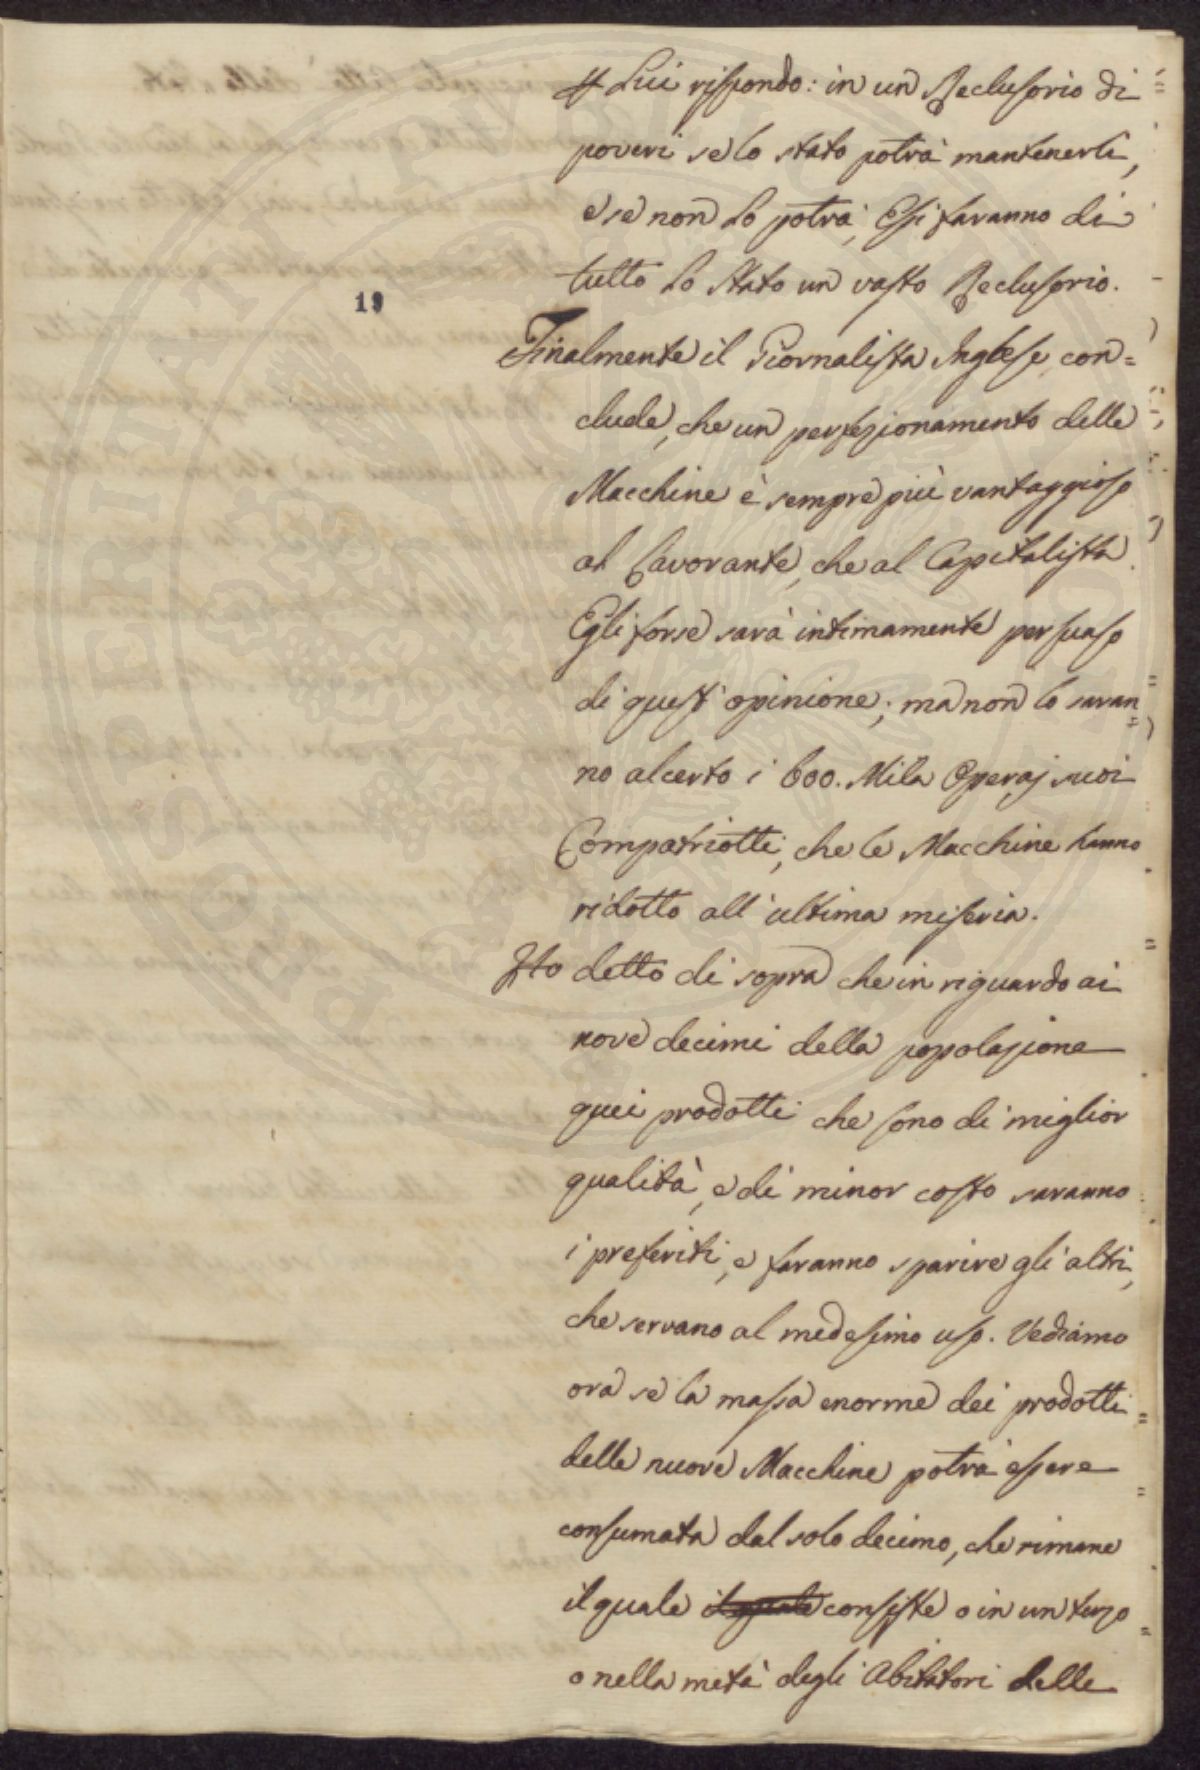 A Lui rispondo: in un Reclusorio di
poveri se lo stato potrà mantenerli,
e se non lo potrà, Essi faranno di
tutto lo stato un vasto Reclusorio.
19
Finalmente il Giornalista Inglese con=
clude, che un perfezionamento delle
Macchine è sempre più vantaggioso
al Lavorante, che al Capitalista.
Egli forse sarà intimamente persuaso
di quest'opinione; ma non lo saran=
no al certo i 600. Mila Operaj suoi
Compatriotti, che le Macchine hanno
ridotto all'ultima miseria.
Ho detto di sopra che in riguardo ai
nove decimi della popolazione
quei prodotti che sono di miglior
qualità, e di minor costo saranno
i preferiti, e faranno sparire gli altri,
che servano al medesimo uso. Vediamo
ora se la massa enorme dei prodotti
delle nuove Macchine potrà essere
consumata dal solo decimo, che rimane
il quale il quale consiste o in un terzo
o nella metà degli Abitatori delle
PERICVLA PRIVATI PVBLICA PROSPERITATI